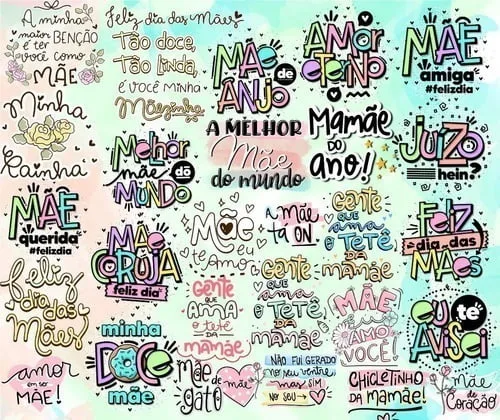 A minha
maior BENÇÃO
é ter
você como
MÃE
Feliz dia das Mães
Tão doce,
Tão linda,
é você minha
Mãezinha
MÃE
de
ANJO
AMOR
eterno
MÃE
amiga
#felizdia
Minha
Rainha
Melhor
mãe do
MUNDO
A MELHOR
Mãe
do mundo
Mamãe
DO
ano!
JUÍZO
hein?
MÃE
querida
#felizdia
MÃE
CORUJA
feliz dia
Mãe
eu
te amo
a mãe
tá ON
Gente
QUE
ama
o TETÊ
DA
MAMÃE
FELIZ
dia das
MÃES
Feliz
dia das
Mães
Gente
QUE
AMA
o tetê
da
MAMÃE
Gente
QUE
ama
o TETÊ
DA
MAMÃE
MÃE
AMO
VOCÊ!
eu te
AViSei
minha
DOCE
mãe
amor
em ser
MÃE!
mãe
de
gato
de mãe
NÃO FUI GERADO
no seu ventre
mas SIM
NO seu
CHiCLETiNHO
DA mamãe!
Mãe
de
CORAÇÃO